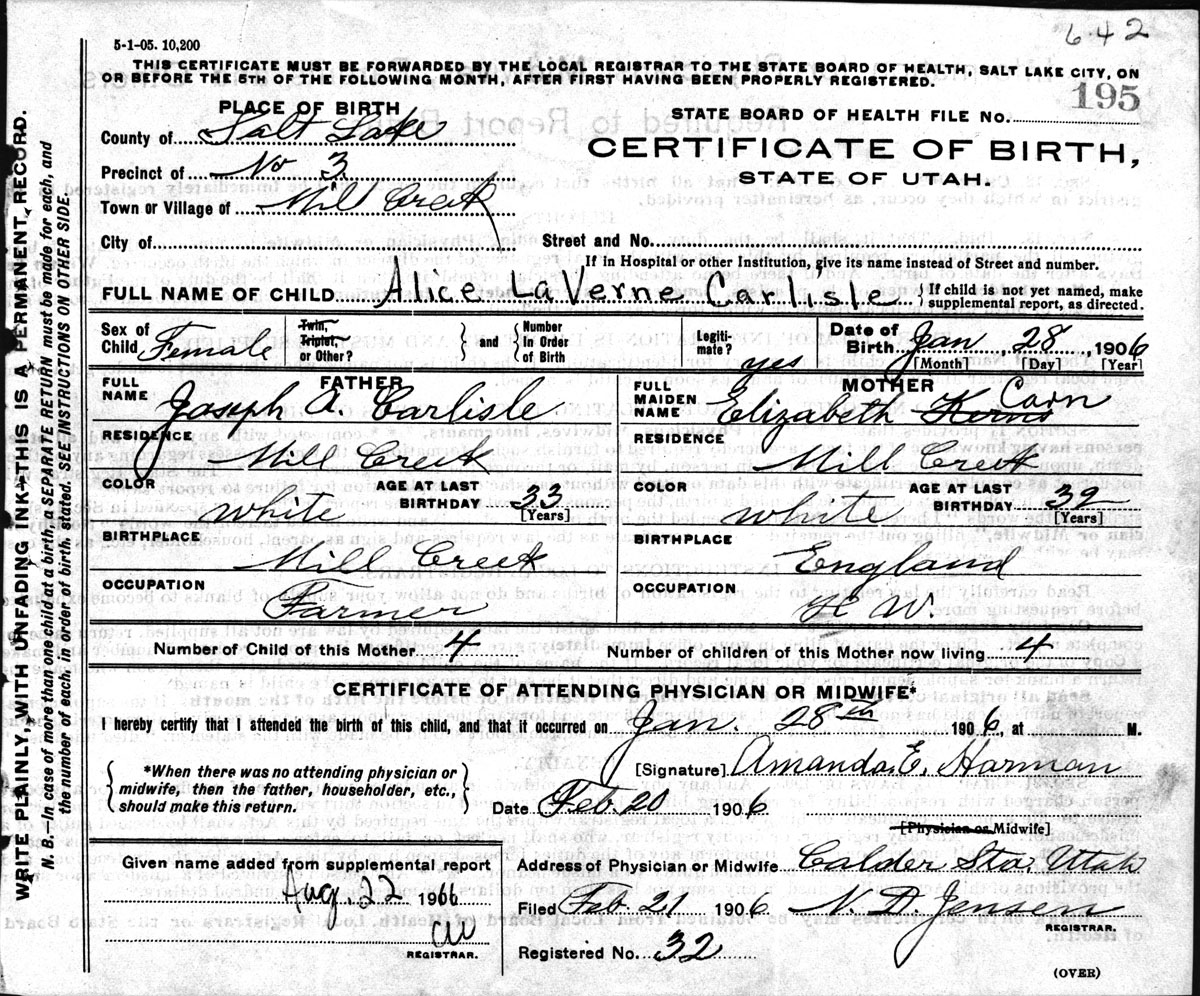 642
5-1-05. 10,200
THIS CERTIFICATE MUST BE FORWARDED BY THE LOCAL REGISTRAR TO THE STATE BOARD OF HEALTH, SALT LAKE CITY, ON
OR BEFORE THE 5TH OF THE FOLLOWING MONTH, AFTER FIRST HAVING BEEN PROPERLY REGISTERED.
195
PLACE OF BIRTH
STATE BOARD OF HEALTH FILE No.
County of Salt Lake
CERTIFICATE OF BIRTH,
Precinct of No 3
STATE OF UTAH.
Town or Village of Mill Creek
City of
Street and No.
If in Hospital or other Institution, give its name instead of Street and number.
FULL NAME OF CHILD Alice La Verne Carlisle { If child is not yet named, make
supplemental report, as directed.
Sex of Child Female
Twin, Triplet, or Other?
} and {
Number In Order of Birth
Legiti- mate? yes
Date of Birth Jan 28, 1906
[Month] [Day] [Year]
FATHER
FULL NAME Joseph A. Carlisle
RESIDENCE Mill Creek
COLOR White AGE AT LAST BIRTHDAY 33 [Years]
BIRTHPLACE Mill Creek
OCCUPATION Farmer
MOTHER
FULL MAIDEN NAME Elizabeth Kerns Corn
RESIDENCE Mill Creek
COLOR White AGE AT LAST BIRTHDAY 32 [Years]
BIRTHPLACE England
OCCUPATION H W.
Number of Child of this Mother 4
Number of children of this Mother now living 4
CERTIFICATE OF ATTENDING PHYSICIAN OR MIDWIFE*
I hereby certify that I attended the birth of this child, and that it occurred on Jan. 28th 1906, at M.
{ *When there was no attending physician or
midwife, then the father, householder, etc.,
should make this return. }
[Signature] Amanda E. Harman
Date Feb 20 1906
[Physician or Midwife]
Given name added from supplemental report
Aug. 22 1966
REGISTRAR.
Address of Physician or Midwife Calder Sta. Utah
Filed Feb. 21 1906 N. D. Jensen
REGISTRAR.
Registered No. 32
(OVER)
WRITE PLAINLY, WITH UNFADING INK—THIS IS A PERMANENT RECORD.
N. B.—In case of more than one child at a birth, a SEPARATE RETURN must be made for each, and
the number of each, in order of birth, stated. SEE INSTRUCTIONS ON OTHER SIDE.